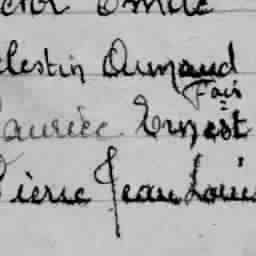 ctor Emile
elestin Armand
Fois
aurice Ernest
Pierre Jean Louis